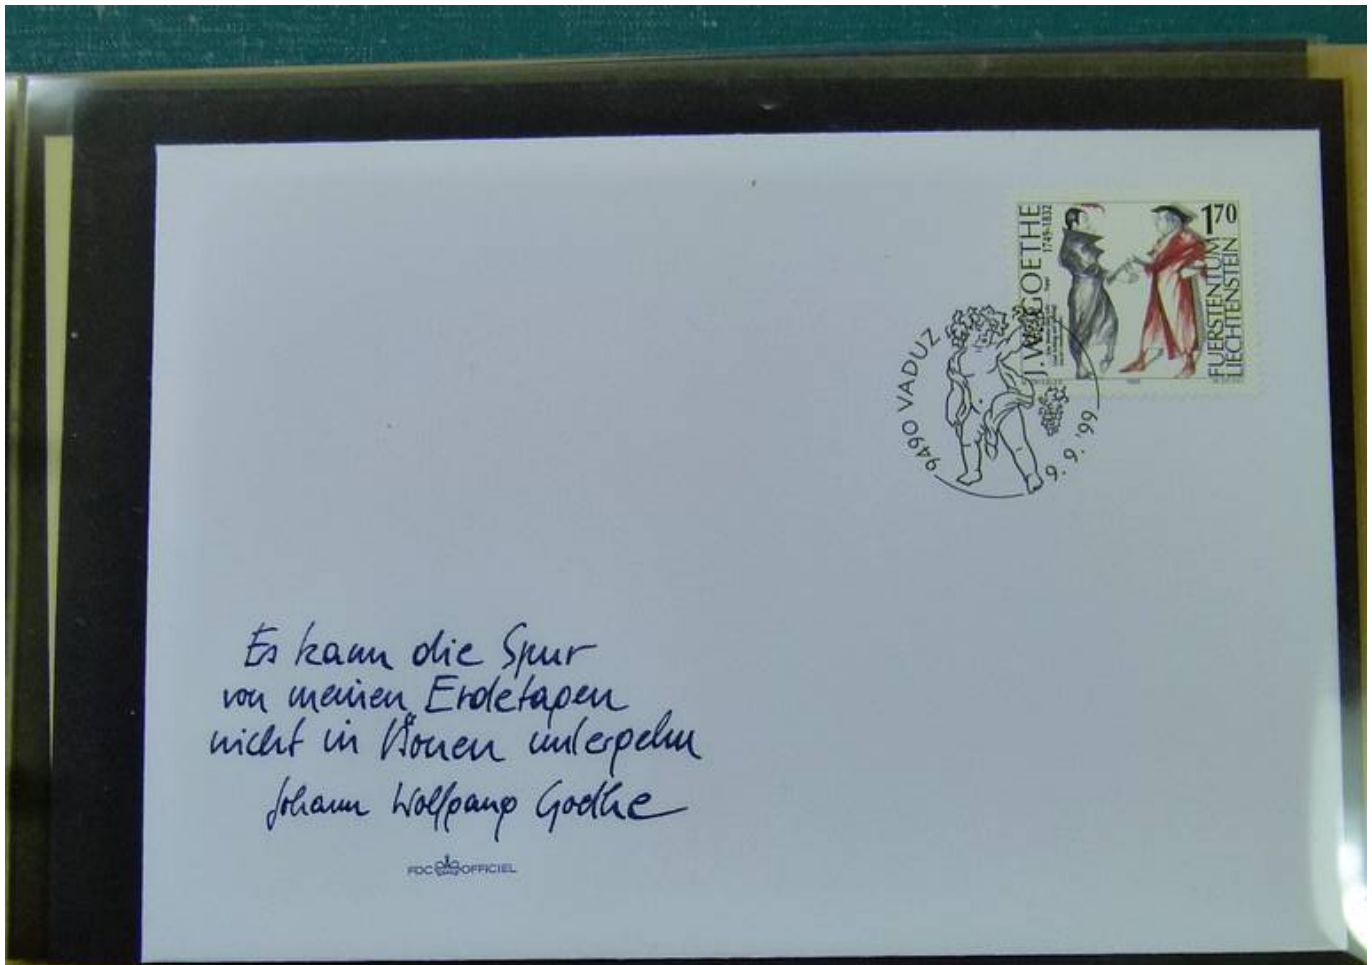 J.W. GOETHE
1749-1832
170
FUERSTENTUM
LIECHTENSTEIN
9490 VADUZ
9.9.'99
Es kann die Spur
von meinen Erdetagen
nicht in Äonen untergehn
Johann Wolfgang Goethe
FDC OFFICIEL